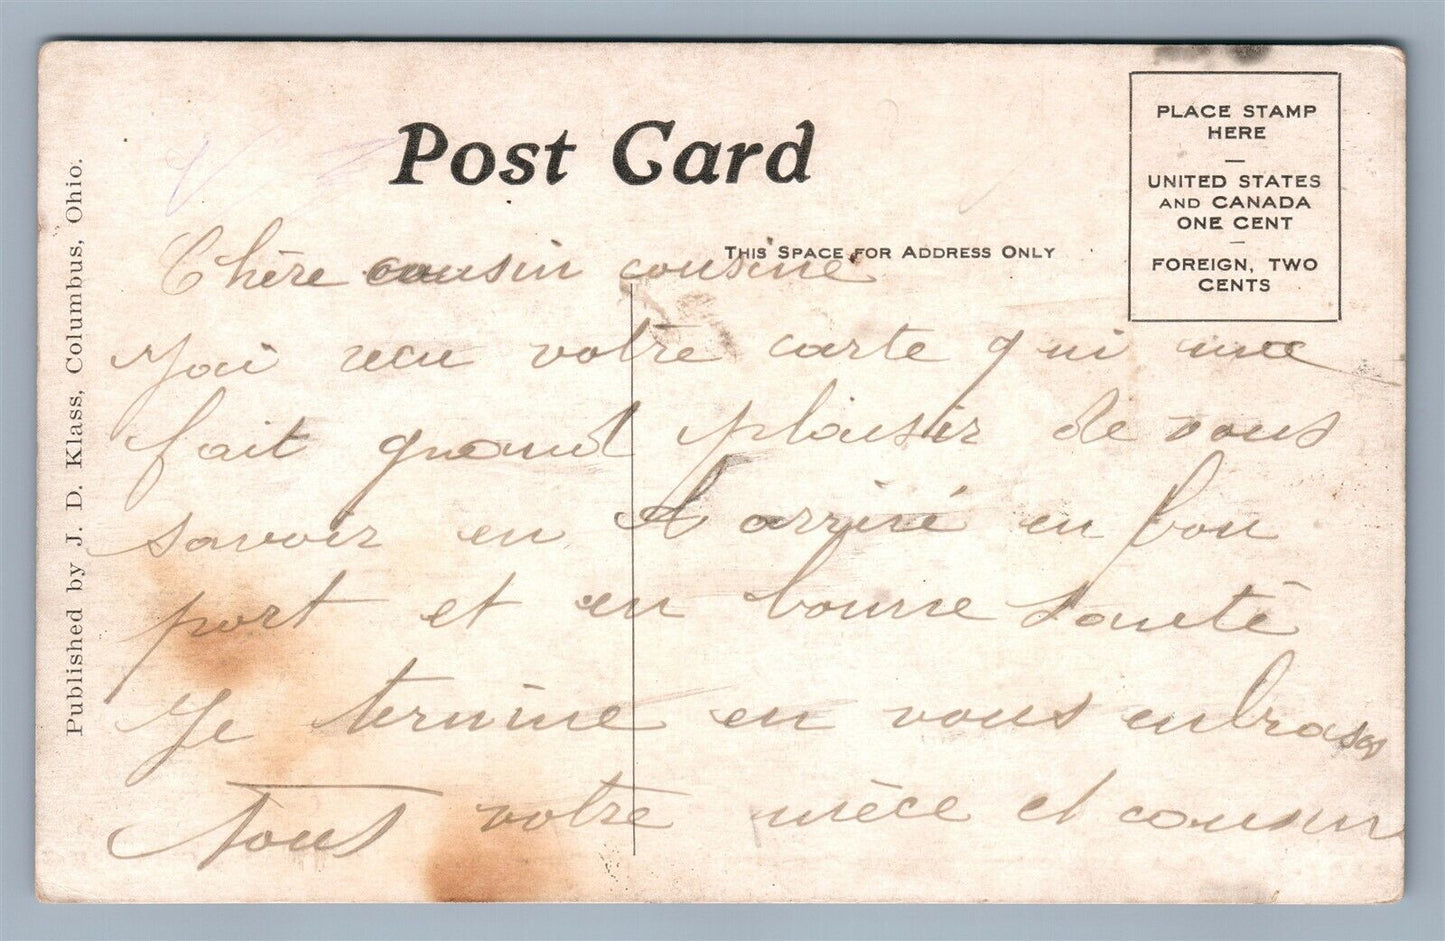 Post Card
PLACE STAMP
HERE
UNITED STATES
AND CANADA
ONE CENT
FOREIGN, TWO
CENTS
THIS SPACE FOR ADDRESS ONLY
Published by J. D. Klass, Columbus, Ohio.
Chère cousin cousine
Jai recu votre carte qui me
fait grand plaisir de vous
savoir en arrivé en bon
port et en bonne santé
Je termine en vous enbrasas
tous votre nièce et cousin